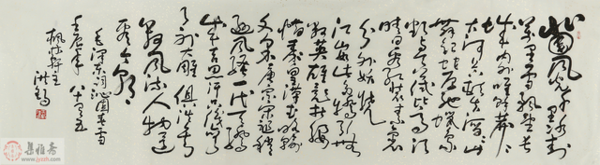 北國风光千里冰封
万里雪飘望长
城内外惟余莽莽
大河上下顿失滔滔山
舞银蛇原驰蜡象
欲与天公试比高须
晴日看红装素裹
分外妖娆
江山如此多娇引无
数英雄竞折腰
惜秦皇汉武略输
文采唐宗宋祖稍
逊风骚一代天骄
成吉思汗只识弯弓
射大雕俱往矣
数风流人物还
看今朝
毛泽东词沁园春雪
壬辰年 八十有五
集雅斋